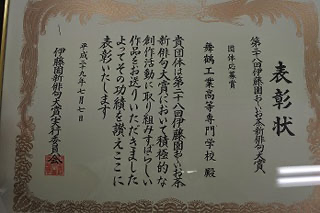 表彰状
第二十八回伊藤園お〜いお茶新俳句大賞
団体応募賞
舞鶴工業高等専門学校 殿
貴団体は第二十八回伊藤園お〜いお茶
新俳句大賞において積極的な
創作活動に取り組みすばらしい
作品をお送りいただきました
よってその功績を讃えここに
表彰いたします
平成二十九年七月七日
伊藤園新俳句大賞実行委員会